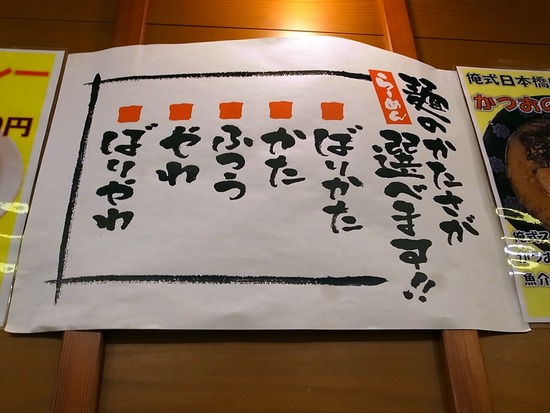 らーめん
麺のかたさが
選べます!!
ばりかた
かた
ふつう
やわ
ばりやわ
俺式日本橋
かつおの
俺式ス
魚介
円